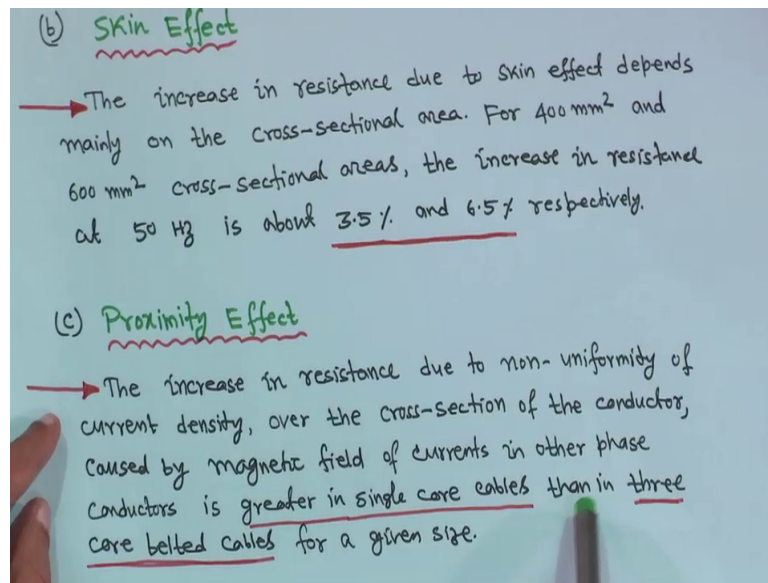 (b) Skin Effect
The increase in resistance due to skin effect depends
mainly on the cross-sectional area. For 400 mm² and
600 mm² cross-sectional areas, the increase in resistance
at 50 Hz is about 3.5% and 6.5% respectively.
(c) Proximity Effect
The increase in resistance due to non-uniformity of
current density, over the cross-section of the conductor,
caused by magnetic field of currents in other phase
conductors is greater in single core cables than in three
core belted cables for a given size.